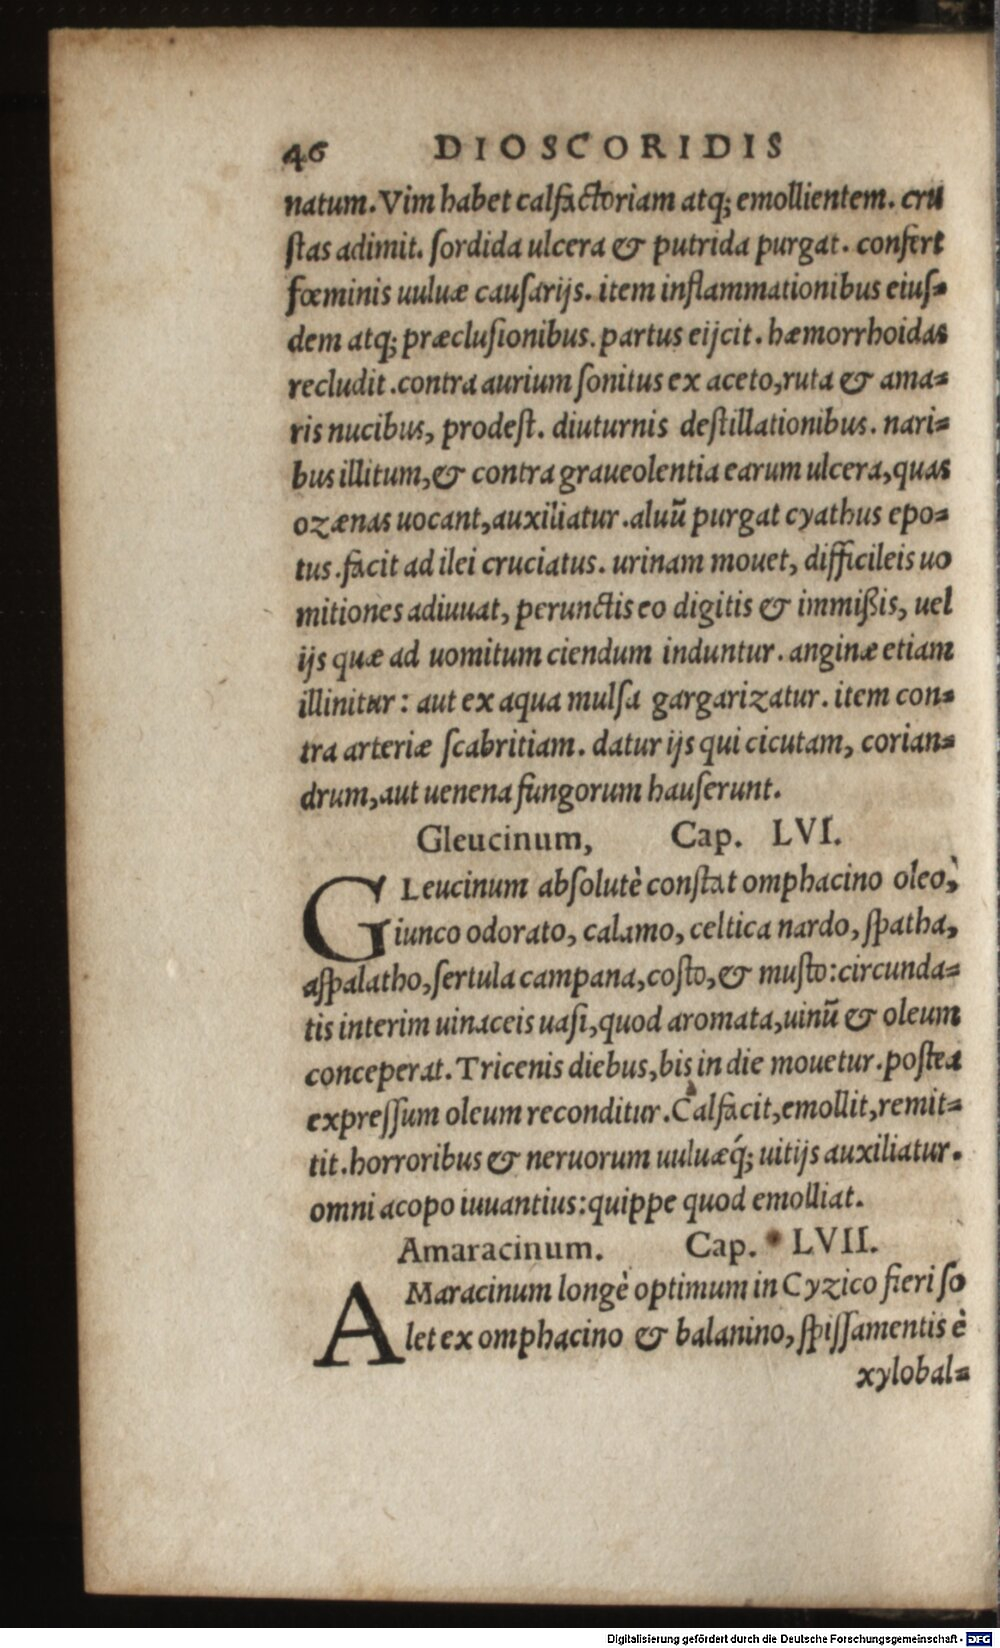 46 DIOSCORIDIS
natum. Vim habet calfactoriam atq; emollientem. cru
ſtas adimit. ſordida ulcera & putrida purgat. confert
fœminis uuluæ cauſarijs. item inflammationibus eiuſ-
dem atq; præcluſionibus. partus eijcit. hæmorrhoidas
recludit. contra aurium ſonitus ex aceto, ruta & ama-
ris nucibus, prodeſt. diuturnis deſtillationibus. nari-
bus illitum, & contra graueolentia earum ulcera, quas
ozænas uocant, auxiliatur. aluū purgat cyathus epo-
tus. facit ad ilei cruciatus. urinam mouet, difficileis uo
mitiones adiuuat, perunctis eo digitis & immißis, uel
ijs quæ ad uomitum ciendum induntur. anginæ etiam
illinitur: aut ex aqua mulſa gargarizatur. item con-
tra arteriæ ſcabritiam. datur ijs qui cicutam, corian-
drum, aut uenena fungorum hauſerunt.
Gleucinum, Cap. LVI.
GLeucinum abſolutè conſtat omphacino oleo,
iunco odorato, calamo, celtica nardo, ſpatha,
aſpalatho, ſertula campana, coſto, & muſto: circunda-
tis interim uinaceis uaſi, quod aromata, uinū & oleum
conceperat. Tricenis diebus, bis in die mouetur. poſtea
expreſſum oleum reconditur. Calfacit, emollit, remit-
tit. horroribus & neruorum uuluæq́; uitijs auxiliatur.
omni acopo iuuantius: quippe quod emolliat.
Amaracinum. Cap. LVII.
AMaracinum longè optimum in Cyzico fieri ſo
let ex omphacino & balanino, ſpiſſamentis è
xylobal-
Digitalisierung gefördert durch die Deutsche Forschungsgemeinschaft - DFG